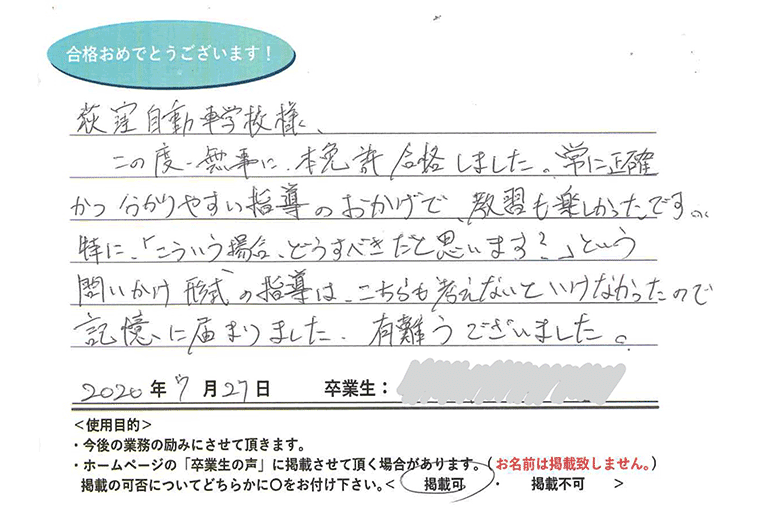 合格おめでとうございます！
荻窪自動車学校様、
この度、無事に、本免許合格しました。常に正確
かつ分かりやすい指導のおかげで、教習も楽しかったです。
特に、「こういう場合、どうすべきだと思います？」という
問いかけ形式の指導は、こちらも考えないといけなかったので
記憶に届まりました。有難うございました。
2020年7月27日　卒業生：
＜使用目的＞
・今後の業務の励みにさせて頂きます。
・ホームページの「卒業生の声」に掲載させて頂く場合があります。（お名前は掲載致しません。）
掲載の可否についてどちらかに〇をお付け下さい。＜　掲載可　・　掲載不可　＞